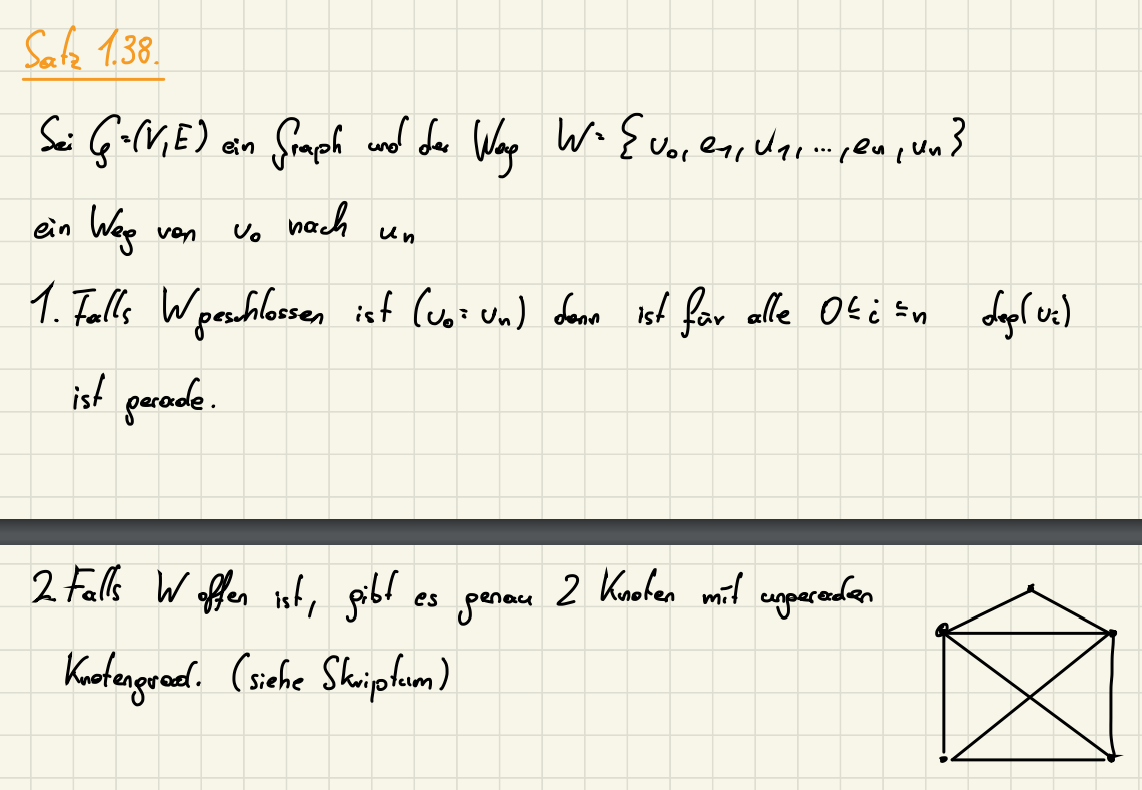 Satz 1.38.
Sei G=(V,E) ein Graph und der Weg W= {v₀, e₁, v₁, ..., eₙ, vₙ}
ein Weg von v₀ nach vₙ
1. Falls W geschlossen ist (v₀ = vₙ) dann ist für alle 0≤i≤n deg(vᵢ)
ist gerade.
2 Falls W offen ist, gibt es genau 2 Knoten mit ungeraden
Knotengrad. (siehe Skriptum)